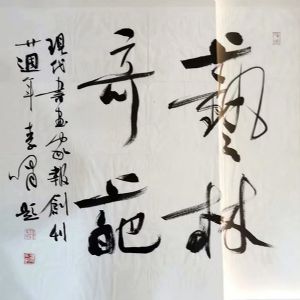 藝林
奇葩
現代書畫家報創刊
廿週年 李 題